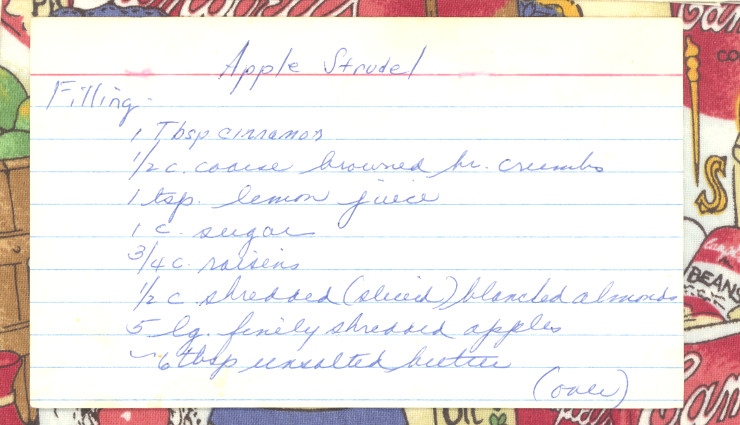 Apple Strudel
Filling -
1 Tbsp cinnamon
1/2 c. coarse browned br. crumbs
1 tsp. lemon juice
1 c. sugar
3/4 c. raisins
1/2 c shredded (sliced) blanched almonds
5 lg. finely shredded apples
~6 tbsp unsalted butter
(over)
BEANS